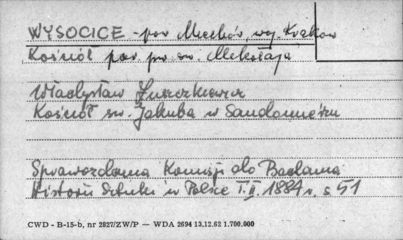 WYSOCICE - pow Miechów, woj. Kraków
Kościół par. pw św. Mikołaja
Władysław Łuszczkiewicz
Kościół św. Jakuba w Sandomierzu
Sprawozdania Komisji do Badania
Historii Sztuki w Polsce T. II. 1884 r. s 51
CWD - B-15-b, nr 2827/ZW/P — WDA 2694 13.12.62 1.700.000